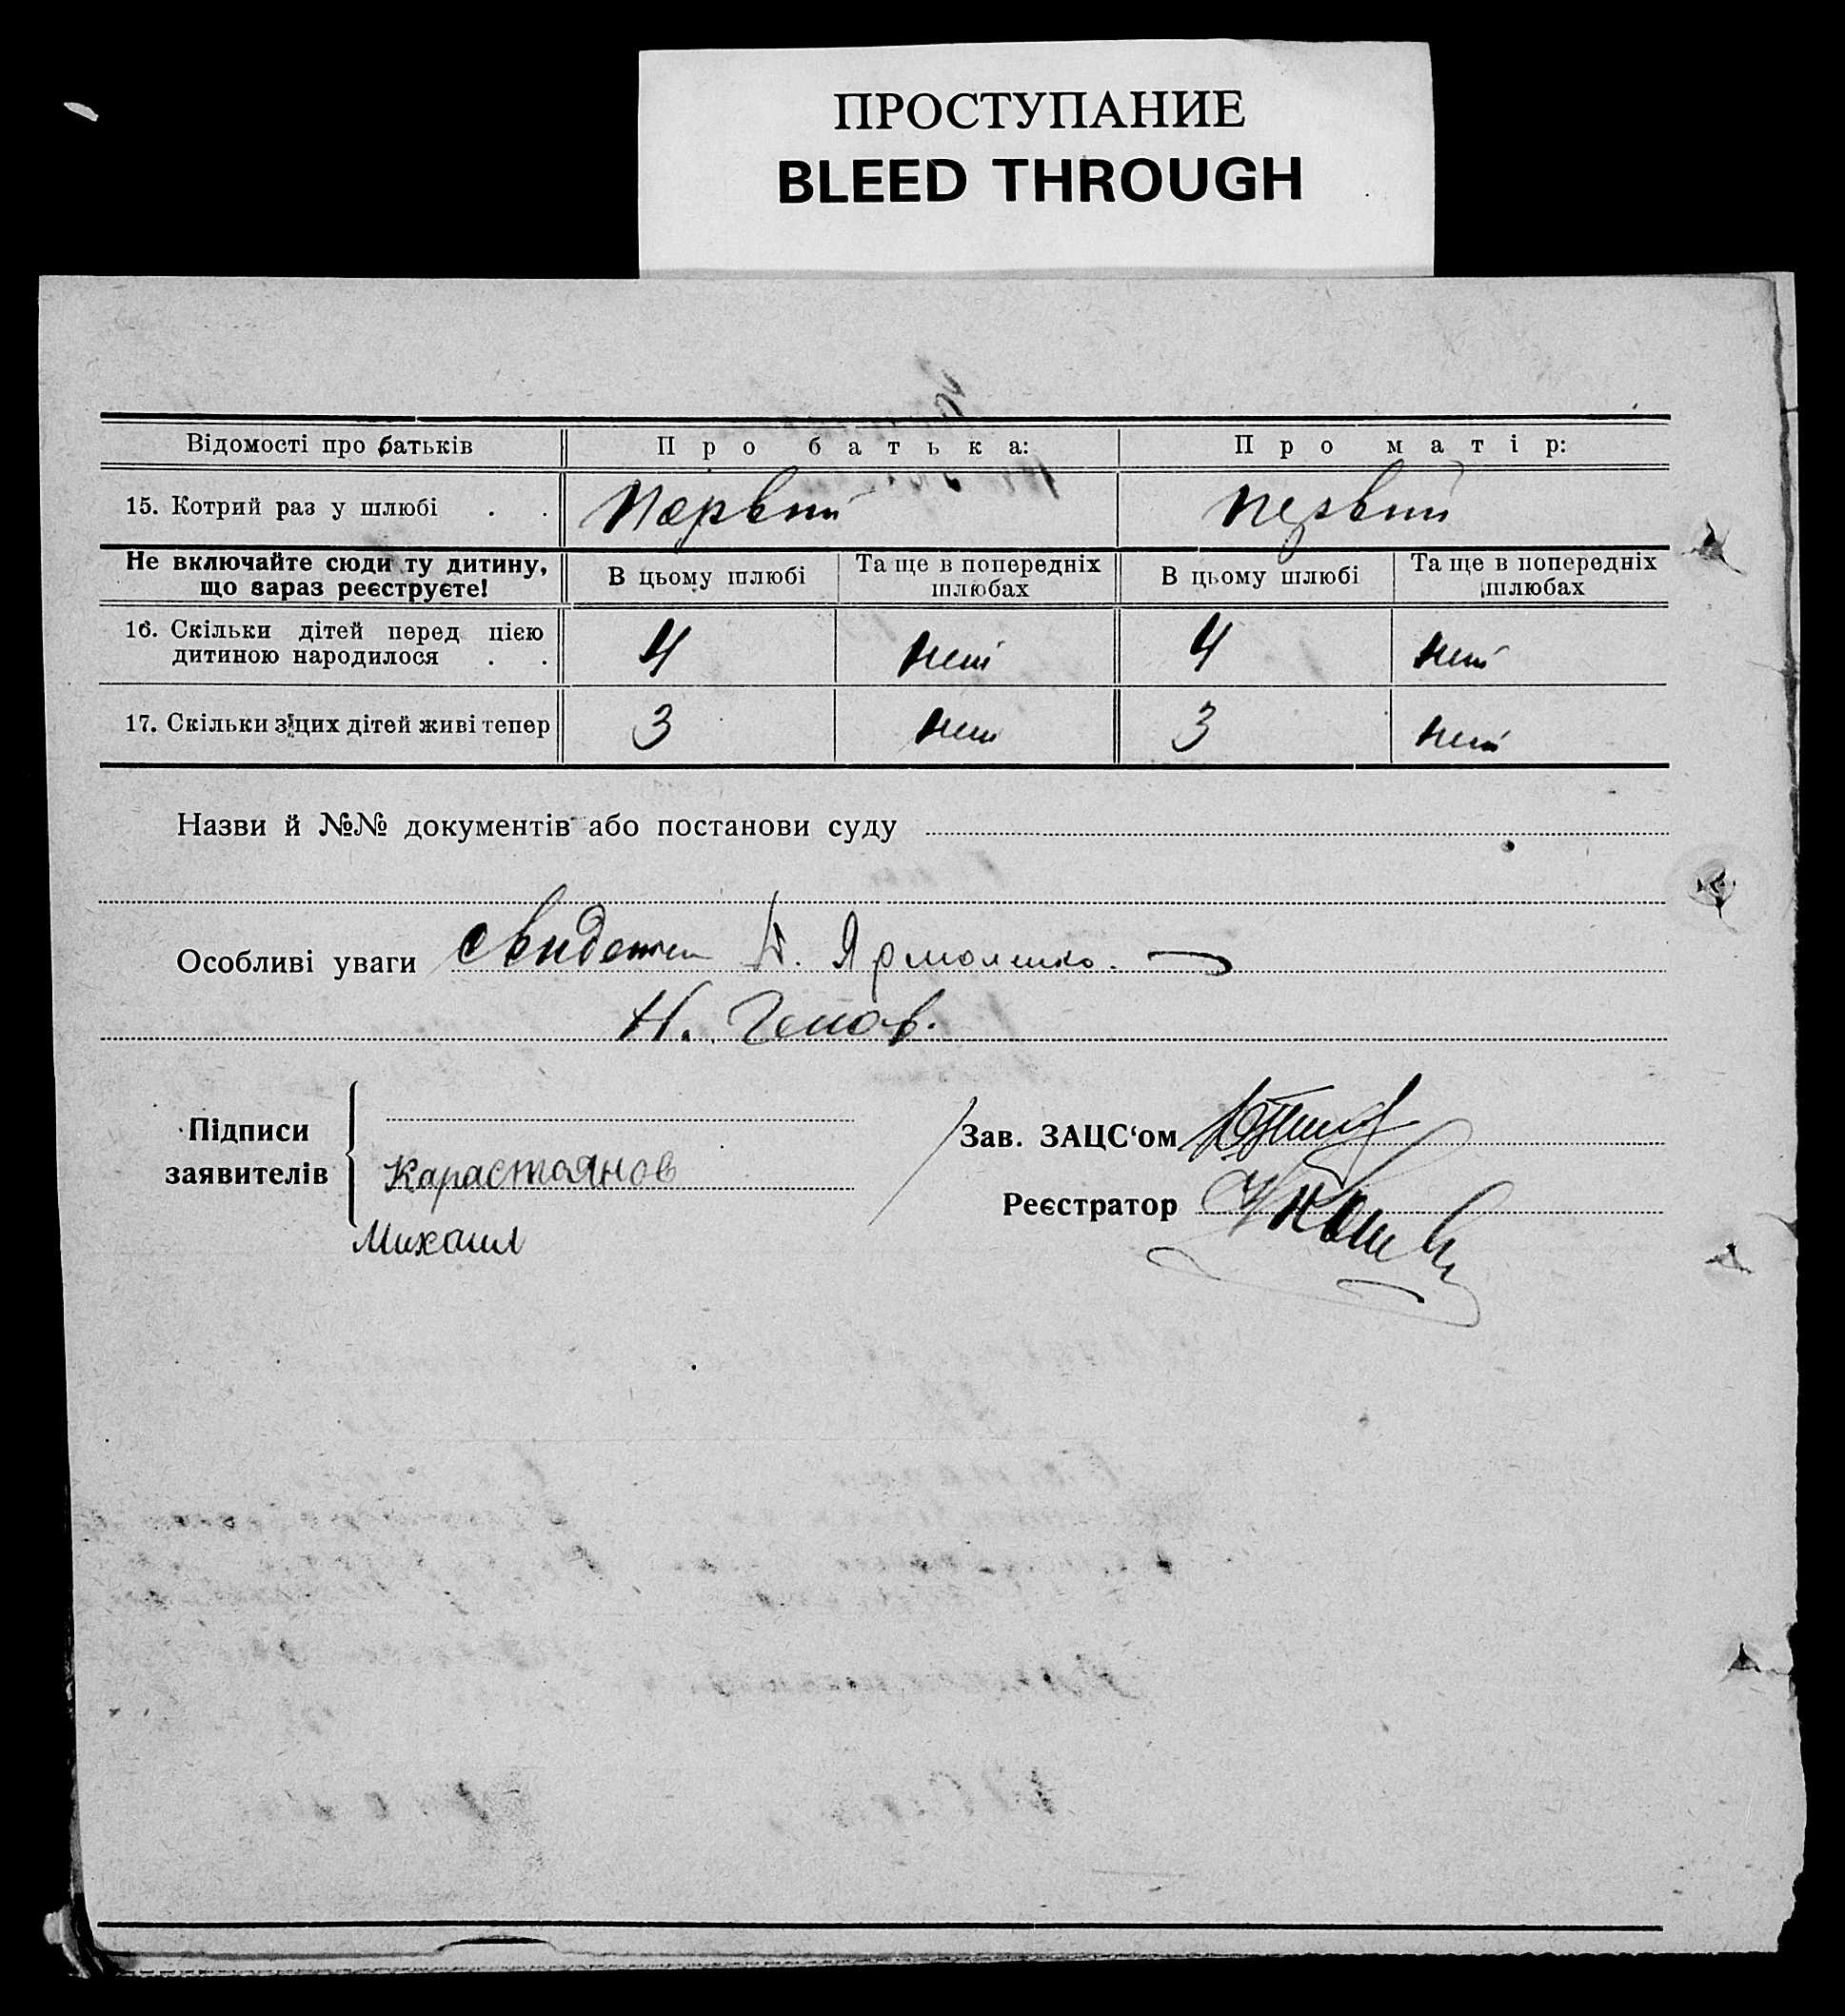 ПРОСТУПАНИЕ
BLEED THROUGH
Відомості про батьків
Про батька:
Про матір:
15. Котрий раз у шлюбі . .
Первий
первий
Не включайте сюди ту дитину,
що зараз реєструєте!
В цьому шлюбі
Та ще в попередніх
шлюбах
В цьому шлюбі
Та ще в попередніх
шлюбах
16. Скільки дітей перед цією
дитиною народилося . .
4
нет
4
нет
17. Скільки з цих дітей живі тепер
3
нет
3
нет
Назви й №№ документів або постанови суду
Особливі уваги
Н.
Підписи
заявителів
Карастоянов
Михаил
Зав. ЗАЦС‘ом
Реєстратор